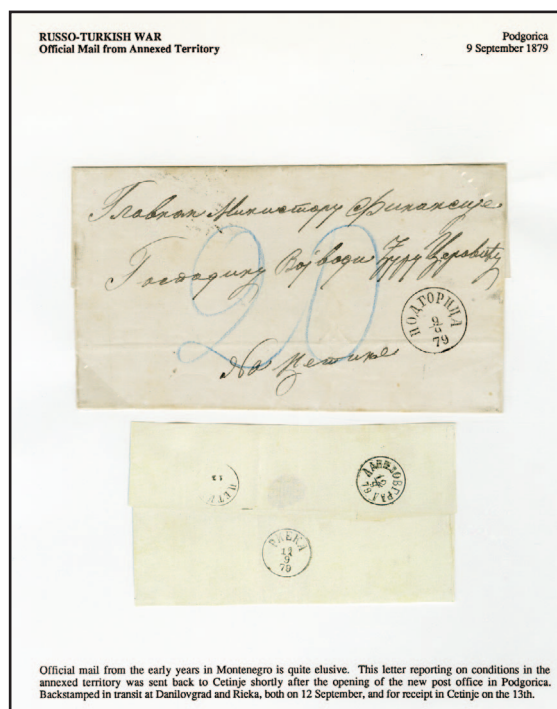 RUSSO-TURKISH WAR
Official Mail from Annexed Territory
Podgorica
9 September 1879
Главном Министру Финансије
Господину Војводи Ђуру Церовићу
20
На Цетиње
ПОДГОРИЦА
9
79
ЦЕТИ
13
ДАНИЛОВГРАД
79
РИЕКА
12
9
79
Official mail from the early years in Montenegro is quite elusive. This letter reporting on conditions in the
annexed territory was sent back to Cetinje shortly after the opening of the new post office in Podgorica.
Backstamped in transit at Danilovgrad and Rieka, both on 12 September, and for receipt in Cetinje on the 13th.